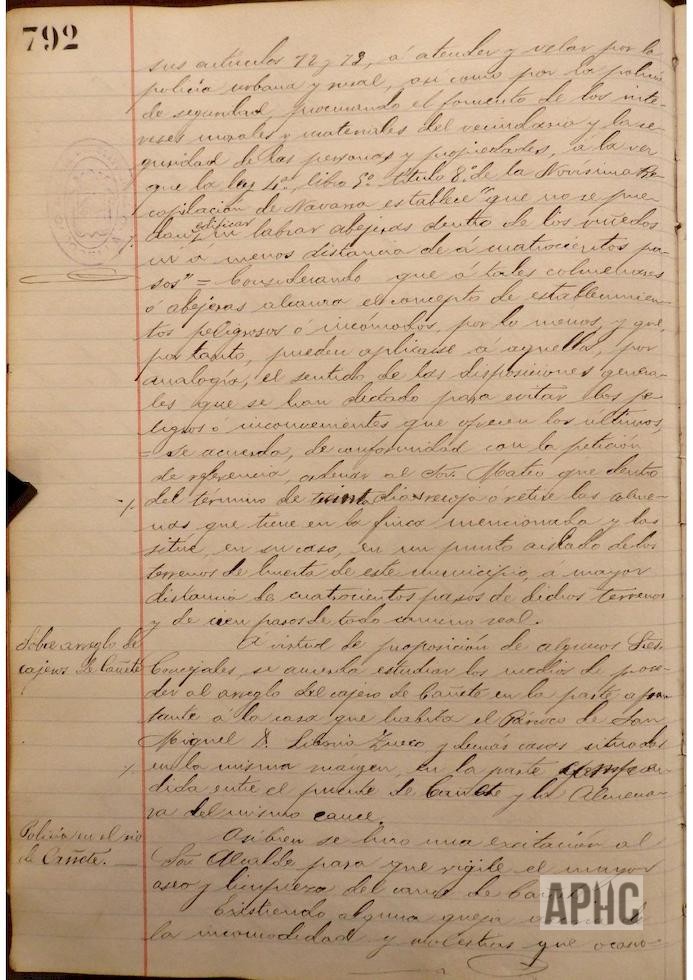 792
sus artículos 72 y 73, á atender y velar por la
policía urbana y rural, asi como por la policía
de seguridad, procurando el fomento de los inte-
reses morales y materiales del vecindario y la se-
guridad de las personas y propiedades, á la vez
que la ley 4ª, libro 5º titulo 8º de la Novísima Re-
copilación de Navarra establece "que no se pue-
dan edificar ni labrar abejeras dentro de los viñedos
ni á menos distancia de á cuatrocientos pa-
sos" = Considerando que á tales colmenares
ó abejeras alcanza el concepto de establecimien-
tos peligrosos ó incómodos, por lo menos, y que,
por tanto, pueden aplicarse á aquellas, por
analogía, el sentido de las disposiciones genera-
les que se han dictado para evitar los pe-
ligros ó inconvenientes que ofrecen los últimos,
= se acuerda, de conformidad con la petición
de referencia, ordenar al Sor. Mateo que dentro
del termino de treinta dias recoja ó retire las colme-
nas que tiene en la finca mencionada y las
sitúe, en su caso, en un punto aislado de los
terrenos de huerta de este municipio, á mayor
distancia de cuatrocientos pasos de dichos terrenos
y de cien pasos de todo camino real.
Sobre arreglo de
cajeros de Cañete
Á virtud de proposición de algunos Sres.
Concejales, se acuerda estudiar los medios de proce-
der al arreglo del cajero de Cañete en la parte afron-
tante á la casa que habita el Párroco de San
Miguel D. Liborio Zueco y demás casas situadas
en la misma márgen, en la parte
dida entre el puente de Cañete y la Almena-
ra del mismo cauce.
Policía en el rio
de Cañete.
Asibien se hizo una excitación al
Sor. Alcalde para que vigile el mayor
aseo y limpieza del cauce de
Existiendo alguna queja
la incomodidad y molestias que ocasio-
APHC